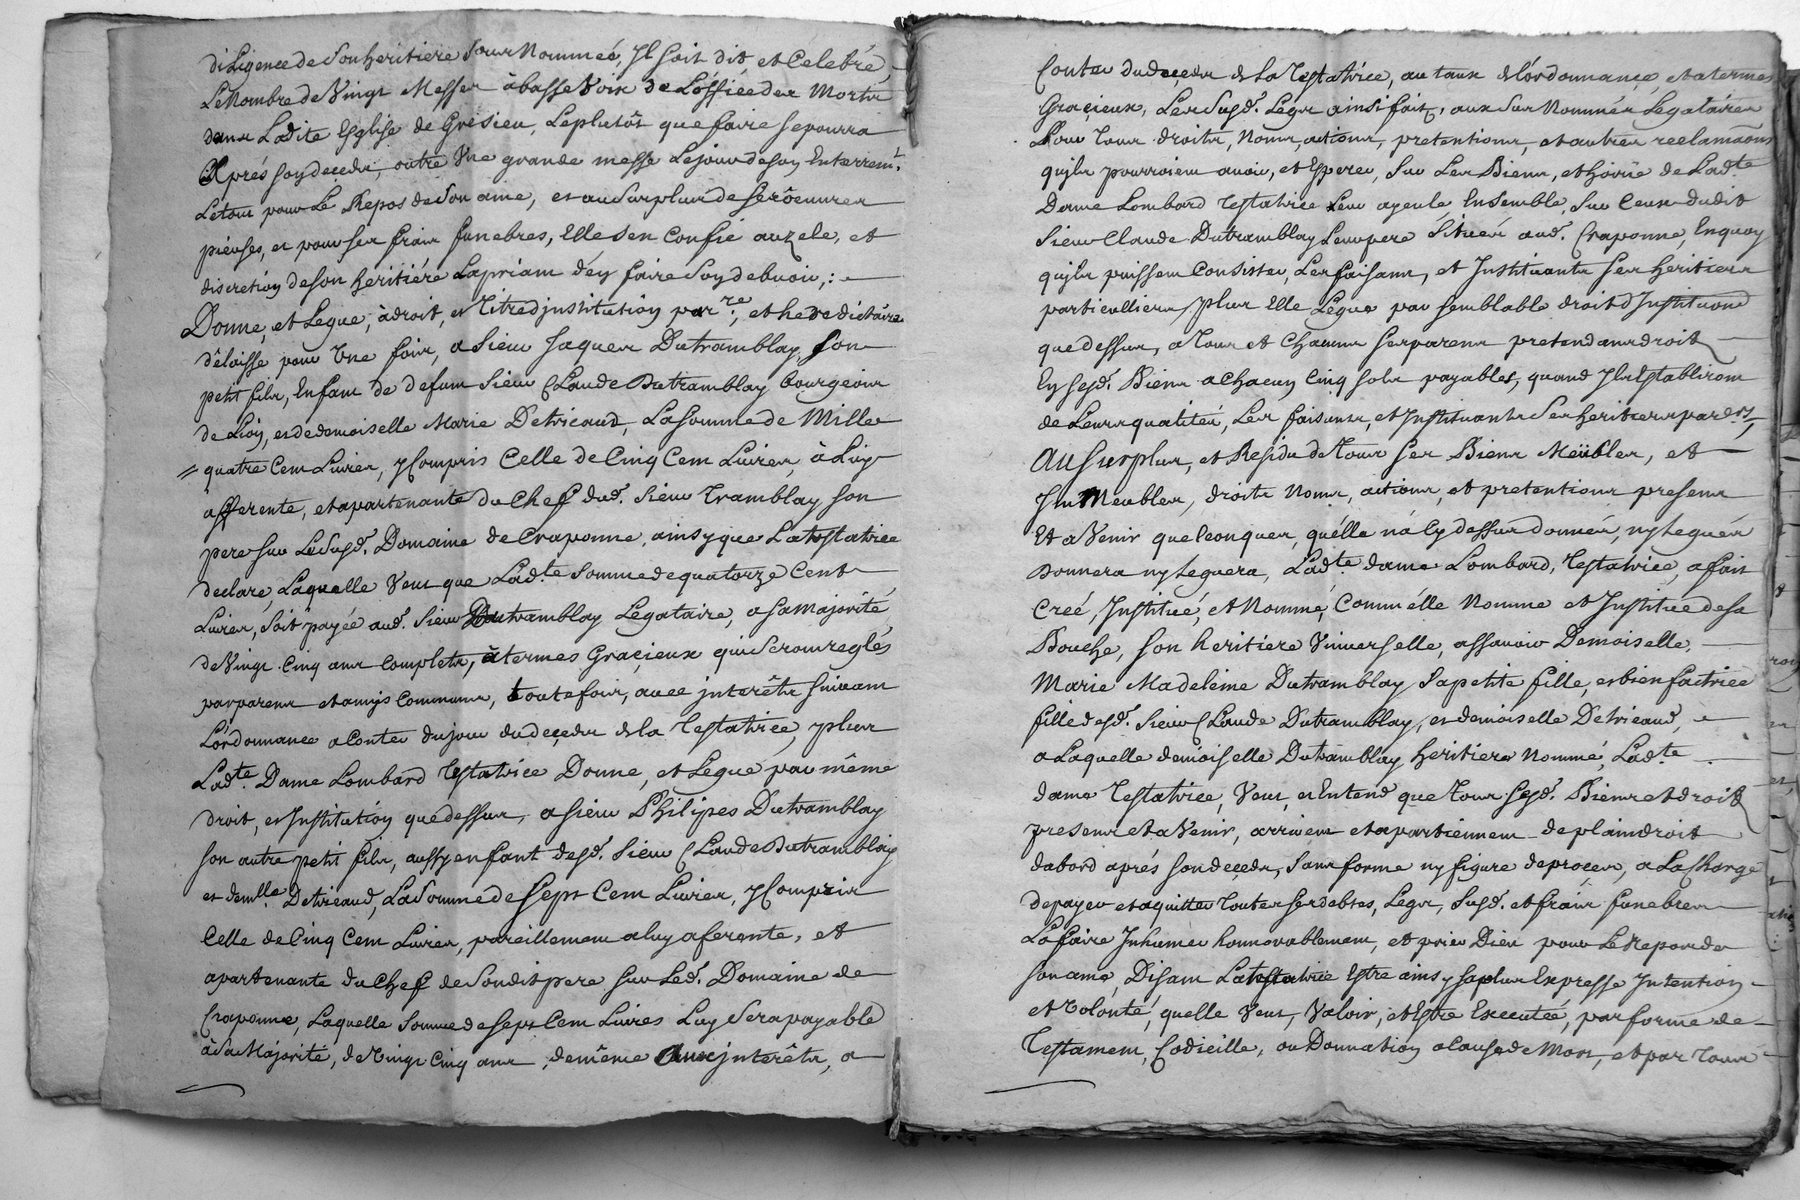 diligence de Son heritiere Sous Nommée, Il soit dit et Celebré,
Le Nombre de Vingt Messes à basse Voix de L'office des Morts
dans Ladite Esglise de Grésieu, Leplutôt que faire sepourra
Aprés soy deceds, outre Une grande messe Lejour de soy Enterremt.
Letout pour Le Repos de Son ame, et au Surplus de ses œuvres
pieuses, et pour ses frais funebres, Elle s'en Confie auzele, et
discretion de son heritiére Lapriant d'ey faire Soy debvoir, :
Donne, et Legue, à droit, et Titre d'jnstitution parre., et heredictaire
délaisse pour Une fois, a Sieur Jaques Dutramblay, Son
petit fils, Enfant de defunt Sieur Claude Dutramblay bourgeois
de Lioy, et de demoiselle Marie Detricaud, La somme de Mille
quatre Cent Livres, y Compris Celle de Cinq Cent Livres, à Luy
afferente, et apartenante du Chef dud. Sieur Tramblay son
pere sur Le Susd. Domaine de Craponne, ainsy que La testatrice
declare, Laquelle Veut que Ladte Somme de quatorze Cent
Livres, soit payée aud. Sieur Dutramblay Legataire, a sa Majorité
de Vingt Cinq ans complets, à termes Graçieux qui Seront reglés
par parens et amis Communs, toutefois, avec jnterêts suivant
L'ordonnance a Conter du jour du deçeds de la Testatrice, plus
Ladte. Dame Lombard Testatrice Donne, et Legue par même
droit, et Institutioy que dessus, a sieur Philipes Dutramblay
son autre petit fils, aussy enfant desd. Sieur Claude Dutramblay
et demlle Detricaud, La Somme de Sept Cent Livres, y Compris
Celle de Cinq Cent Livres, pareillement a luy aferente, et
apartenante du Chef de Sondit pere sur Led. Domaine de
Craponne, Laquelle Somme de Sept Cent Livres Luy Sera payable
à Sa Majorité, de Vingt Cinq ans, de même Aux jnterêts, a
Conter du deçeds de La Testatrice, au taux de l'ordonnançe, et a termes
Graçieux, Les Susd. Legs ainsi fait, aux Sus Nommés Legatáires
Pour Tous droits, Noms, actions, pretentions, et autres reclamãons
qu'jls pourroient avoir, et Esperer, Sur Les Biens, et hoirie de Ladte
Dame Lombard Testatrice Leur ayeule Ensemble, Sur Ceux dudit
Sieur Claude Dutramblay Leur pere Situés aud. Craponne, Enquoy
qu'jls puissent Consister, Les faisant, et Instituants Ses heritiers
particulliers, plus Elle Legue par semblable droit d'Institũon
que dessus, a Tous et Chacuns ses parens pretendans droit
Ey sesd. Biens a Chacun Cinq sols payables, quand Ils Establiront
de Leurs qualitéts, Les faisants, et Instituants Ses heritiers parers,
Au surplus, et Residu de Tous ses Biens Meübles, et
Im Meubles, droits Noms, actions, et pretentions presens
Et a Venir quelconques, qu'elle n'a Cy dessus donnés, ny Legués
Donnera ny Leguera, Ladte. dame Lombard, Testatrice, a fait
Creé, Institué, et Nommé, Comm'élle Nomme et Institue de sa
Bouche, son heritiere Universelle, assavoir Demoiselle,
Marie Madeleine Dutramblay Sapetite fille, et bien factrice
fille desd. Sieur Claude Dutramblay, et demoiselle Detricaud,
a Laquelle demoiselle Dutramblay heritiere Nommé, Ladte.
dame Testatrice, Veut, et Entend que Tous sesd. Biens et droits
presens et a Venir, arrivent et apartiennent de plain droit
dabord aprés son deceds, Sans forme ny figure de procer, a La Charge
de payer et aquitter Toutes ses debtes, Legs, Susd. et frais funebres
La faire Inhumer honnorablement, et prier Dieu pour Le Repos de
son ame, Disant La testatrice Estre ainsy sa plus Expresse Intention
et Volonté, quelle Veut, Valoir, et Estre Executée, par forme de
Testament, Codicille, ou Donnation a Cause de Mort, et par Tous